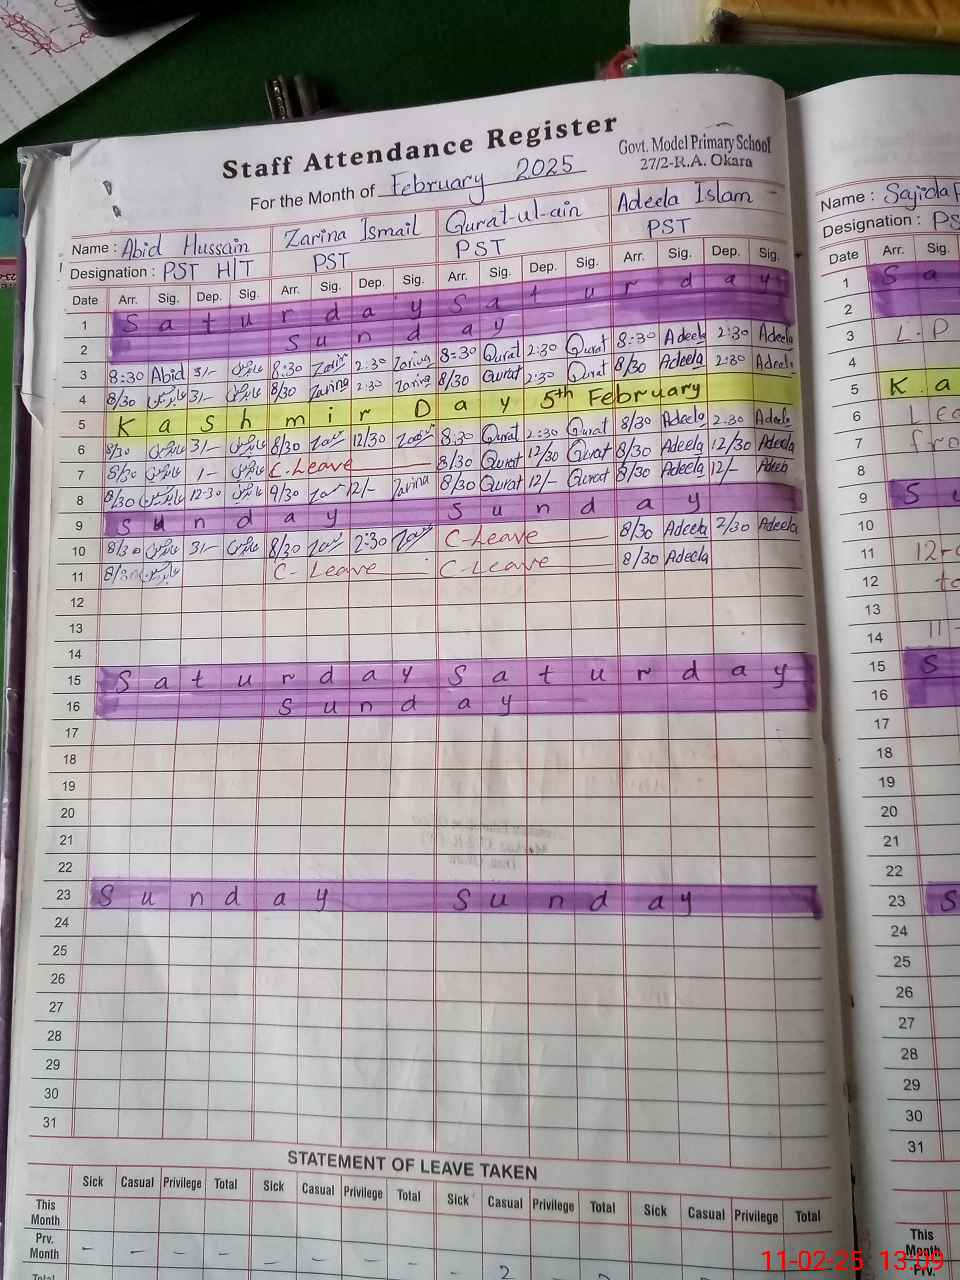 Staff Attendance Register
Govt. Model Primary School
27/2-R.A. Okara
For the Month of February 2025
Name : Abid Hussain Zarina Ismail Qurat-ul-ain Adeela Islam
Designation : PST H/T PST PST PST
Date Arr. Sig. Dep. Sig. Arr. Sig. Dep. Sig. Arr. Sig. Dep. Sig. Arr. Sig. Dep. Sig.
1 Saturday Saturday
2 Sunday
3 8:30 Abid 3/- 8:30 2:30 Zarina 8:30 Qurat 2:30 Qurat 8:30 Adeela 2:30 Adeela
4 8/30 3/- 8/30 Zarina 2:30 Zarina 8/30 Qurat 2:30 Qurat 8/30 Adeela 2:30 Adeela
5 Kashmir Day 5th February
6 8/30 3/- 8/30 12/30 8:30 Qurat 2:30 Qurat 8/30 Adeela 2:30 Adeela
7 8/30 1/- C-Leave 8/30 Qurat 12/30 Qurat 8/30 Adeela 12/30 Adeela
8 8/30 12-30 9/30 12/- Zarina 8/30 Qurat 12/- Qurat 8/30 Adeela 12/- Adeela
9 Sunday Sunday
10 8/30 3/- 8/30 2:30 C-Leave 8/30 Adeela 2/30 Adeela
11 8/30 C- Leave C- Leave 8/30 Adeela
12
13
14
15 Saturday Saturday
16 Sunday
17
18
19
20
21
22
23 Sunday Sunday
24
25
26
27
28
29
30
31
STATEMENT OF LEAVE TAKEN
Sick Casual Privilege Total Sick Casual Privilege Total Sick Casual Privilege Total Sick Casual Privilege Total
This Month
Prv. Month - - - - - - - - - 2
Name :
Designation : PS
Date Arr. Sig.
1 Sa
2
3 L.P
4
5 Ka
6
7 fro
8
9 Su
10
11
12
13
14 11-
15 S
16
17
18
19
20
21
22
23 S
24
25
26
27
28
29
30
31
This Month
Prv.
11-02-25 13:09